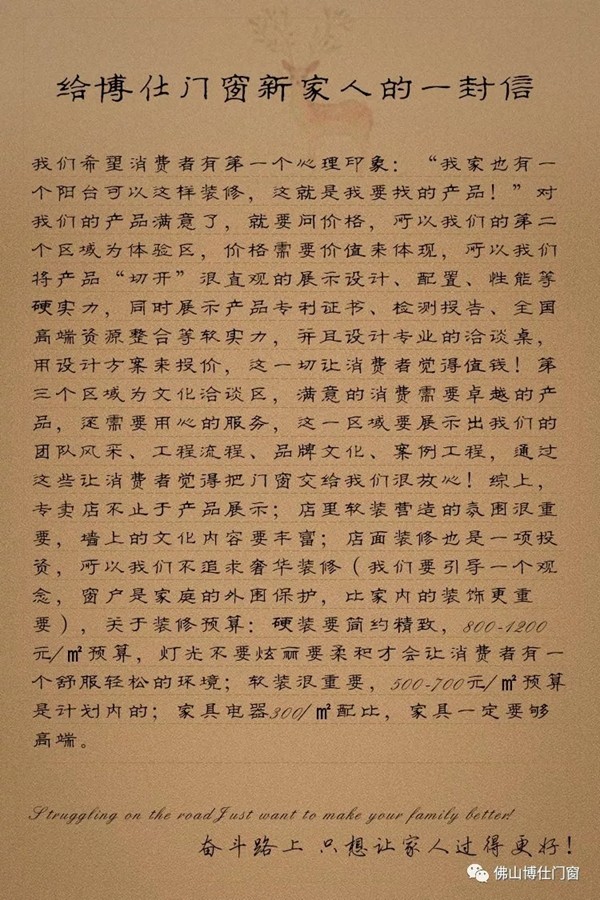 给博仕门窗新家人的一封信
我们希望消费者有第一个心理印象：“我家也有一
个阳台可以这样装修，这就是我要找的产品！”对
我们的产品满意了，就要问价格，所以我们的第二
个区域为体验区，价格需要价值来体现，所以我们
将产品“切开”很直观的展示设计、配置、性能等
硬实力，同时展示产品专利证书、检测报告、全国
高端资源整合等软实力，并且设计专业的洽谈桌，
用设计方案来报价，这一切让消费者觉得值钱！第
三个区域为文化洽谈区，满意的消费需要卓越的产
品，还需要用心的服务，这一区域要展示出我们的
团队风采、工程流程、品牌文化、案例工程，通过
这些让消费者觉得把门窗交给我们很放心！综上，
专卖店不止于产品展示；店里软装营造的氛围很重
要，墙上的文化内容要丰富；店面装修也是一项投
资，所以我们不追求奢华装修（我们要引导一个观
念，窗户是家庭的外围保护，比家内的装饰更重
要），关于装修预算：硬装要简约精致，800-1200
元/㎡预算，灯光不要炫丽要柔和才会让消费者有一
个舒服轻松的环境；软装很重要，500-700元/㎡预算
是计划内的；家具电器300/㎡配比，家具一定要够
高端。
Struggling on the road Just want to make your family better!
奋斗路上 只想让家人过得更好！
佛山博仕门窗